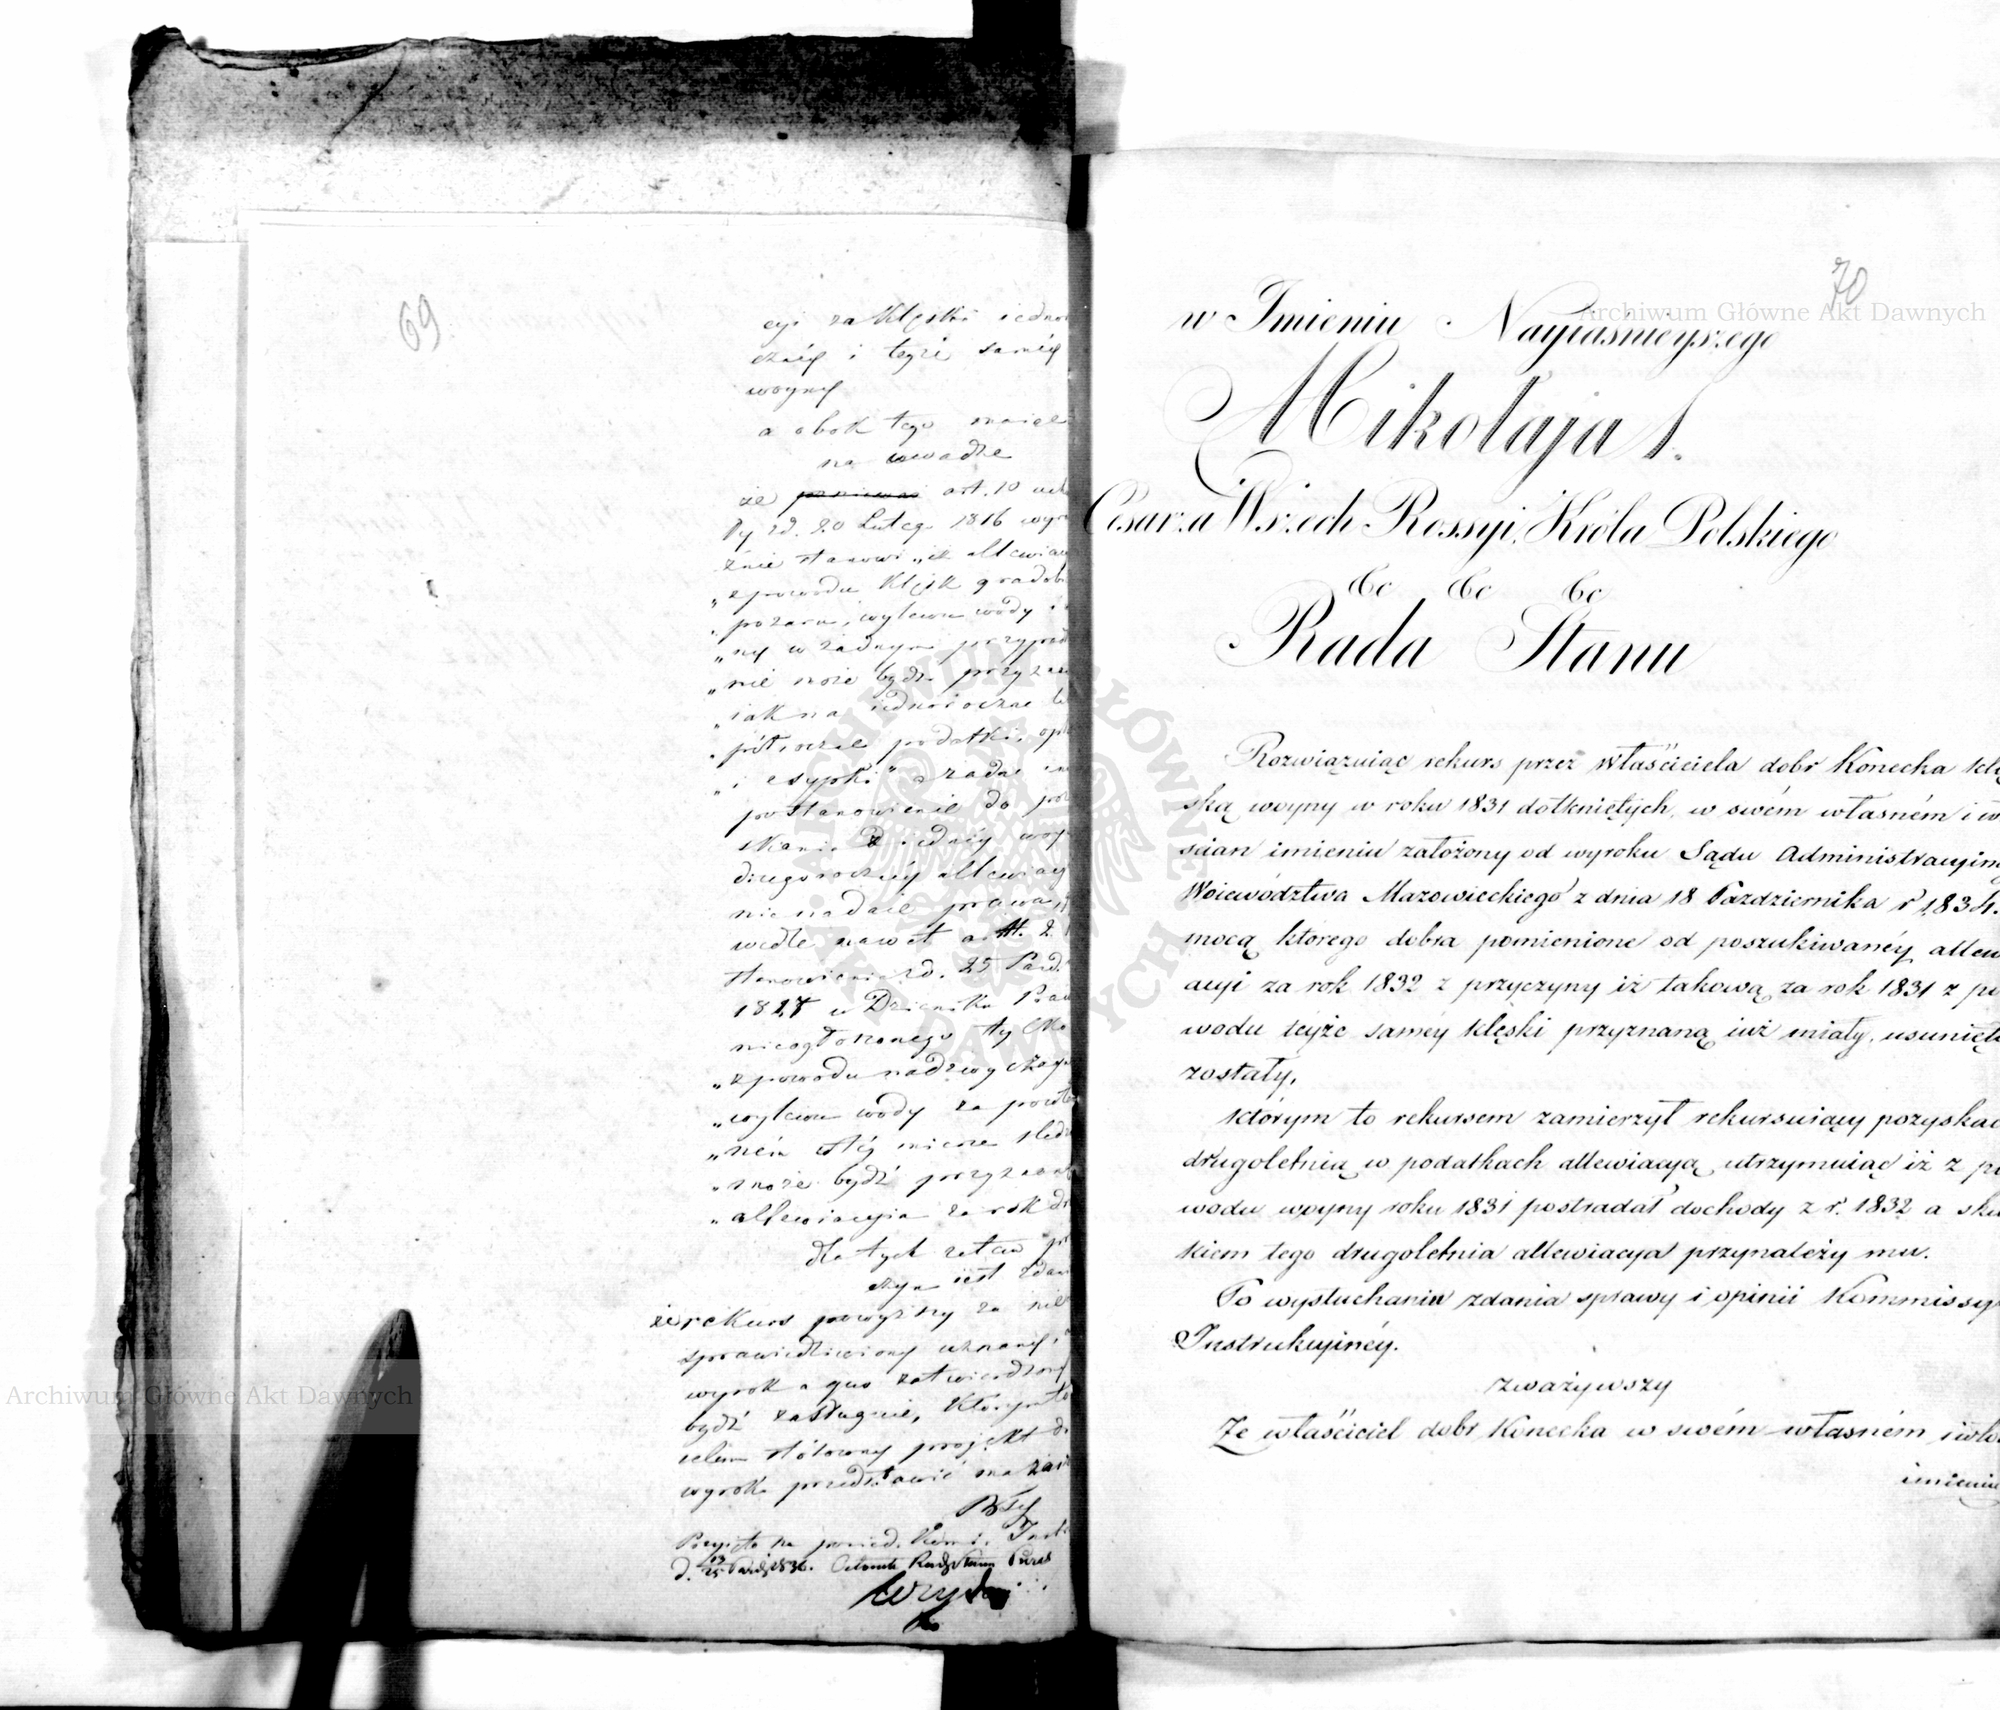 69
cyi za klęski iedno
czney i teyże saméy
woyny
a obok tego maiąc
na uwadze
że art. 10 uch
ły zd. 20 Lutego 1816 wyra
źnie stanowi „iż allewiacya
„z powodu klęsk gradob
„pożaru, wylewu wody i
„ny w żadnym przypad
„nie może bydź przyzna
„iak na iednoroczne lu
„półroczne podatki, opł
„i csypki" żadne in
postanowienie do po
skania z iednéy woy
drugoroczney allewiacy
nie nadaie prawa, g
wedle nawet artt. 2. 
stanowienia zd. 25 Pazd.
1817 w Dzienniku Praw
nieogłoszonego tylko
„z powodu nadzwyczayn
„wylewu wody za powtó
„ném téy mieniu śledz
„może bydź przyznan
„allewiacyia za rok dr
dla tych zatém pr
czyn iest zdan
że rekurs powyższy za nie
sprawiedliwiony uznany,
wyrok a quo zatwierdzony
bydź zasługuie, którym to
celem stósowny projekt do
wyroku przedstawić ma zasz
Przyięto na posied. Komi. Instr
d. 13/25 Pazdz 1836. Członek Rady Stanu Prezes
70
w Imieniu Nayiaśnieyszego
Mikołaja I.
Cesarza Wszech Rossyi, Króla Polskiego
&c &c &c
Rada Stanu
Rozwiązuiąc rekurs przez właściciela dobr Konecka klę
ską woyny w roku 1831 dotkniętych, w swém własném i w
ścian imieniu założony od wyroku Sądu Administracyin
Woiewództwa Mazowieckiego z dnia 18 Pazdziernika r 1834.
mocą ktorego dobra pomienione od poszukiwanéy allew
acyi za rok 1832 z przyczyny iż takową za rok 1831 z po
wodu teyże saméy klęski przyznaną iuż miały, usunięte
zostały,
którym to rekursem zamierzył rekursuiący pozyskać
drugoletnią w podatkach allewiacyą, utrzymuiąc iż z po
wodu woyny roku 1831 postradał dochody z r. 1832 a sku
kiem tego drugoletnia allewiacya przynależy mu.
Po wysłuchaniu zdania sprawy i opinii Kommissyi
Instrukcyinéy.
zważywszy
Że właściciel dobr Konecka w swém własném i wło
imieniu
Archiwum Główne Akt Dawnych
Archiwum Główne Akt Dawnych
ARCHIWUM GŁÓWNE AKT DAWNYCH